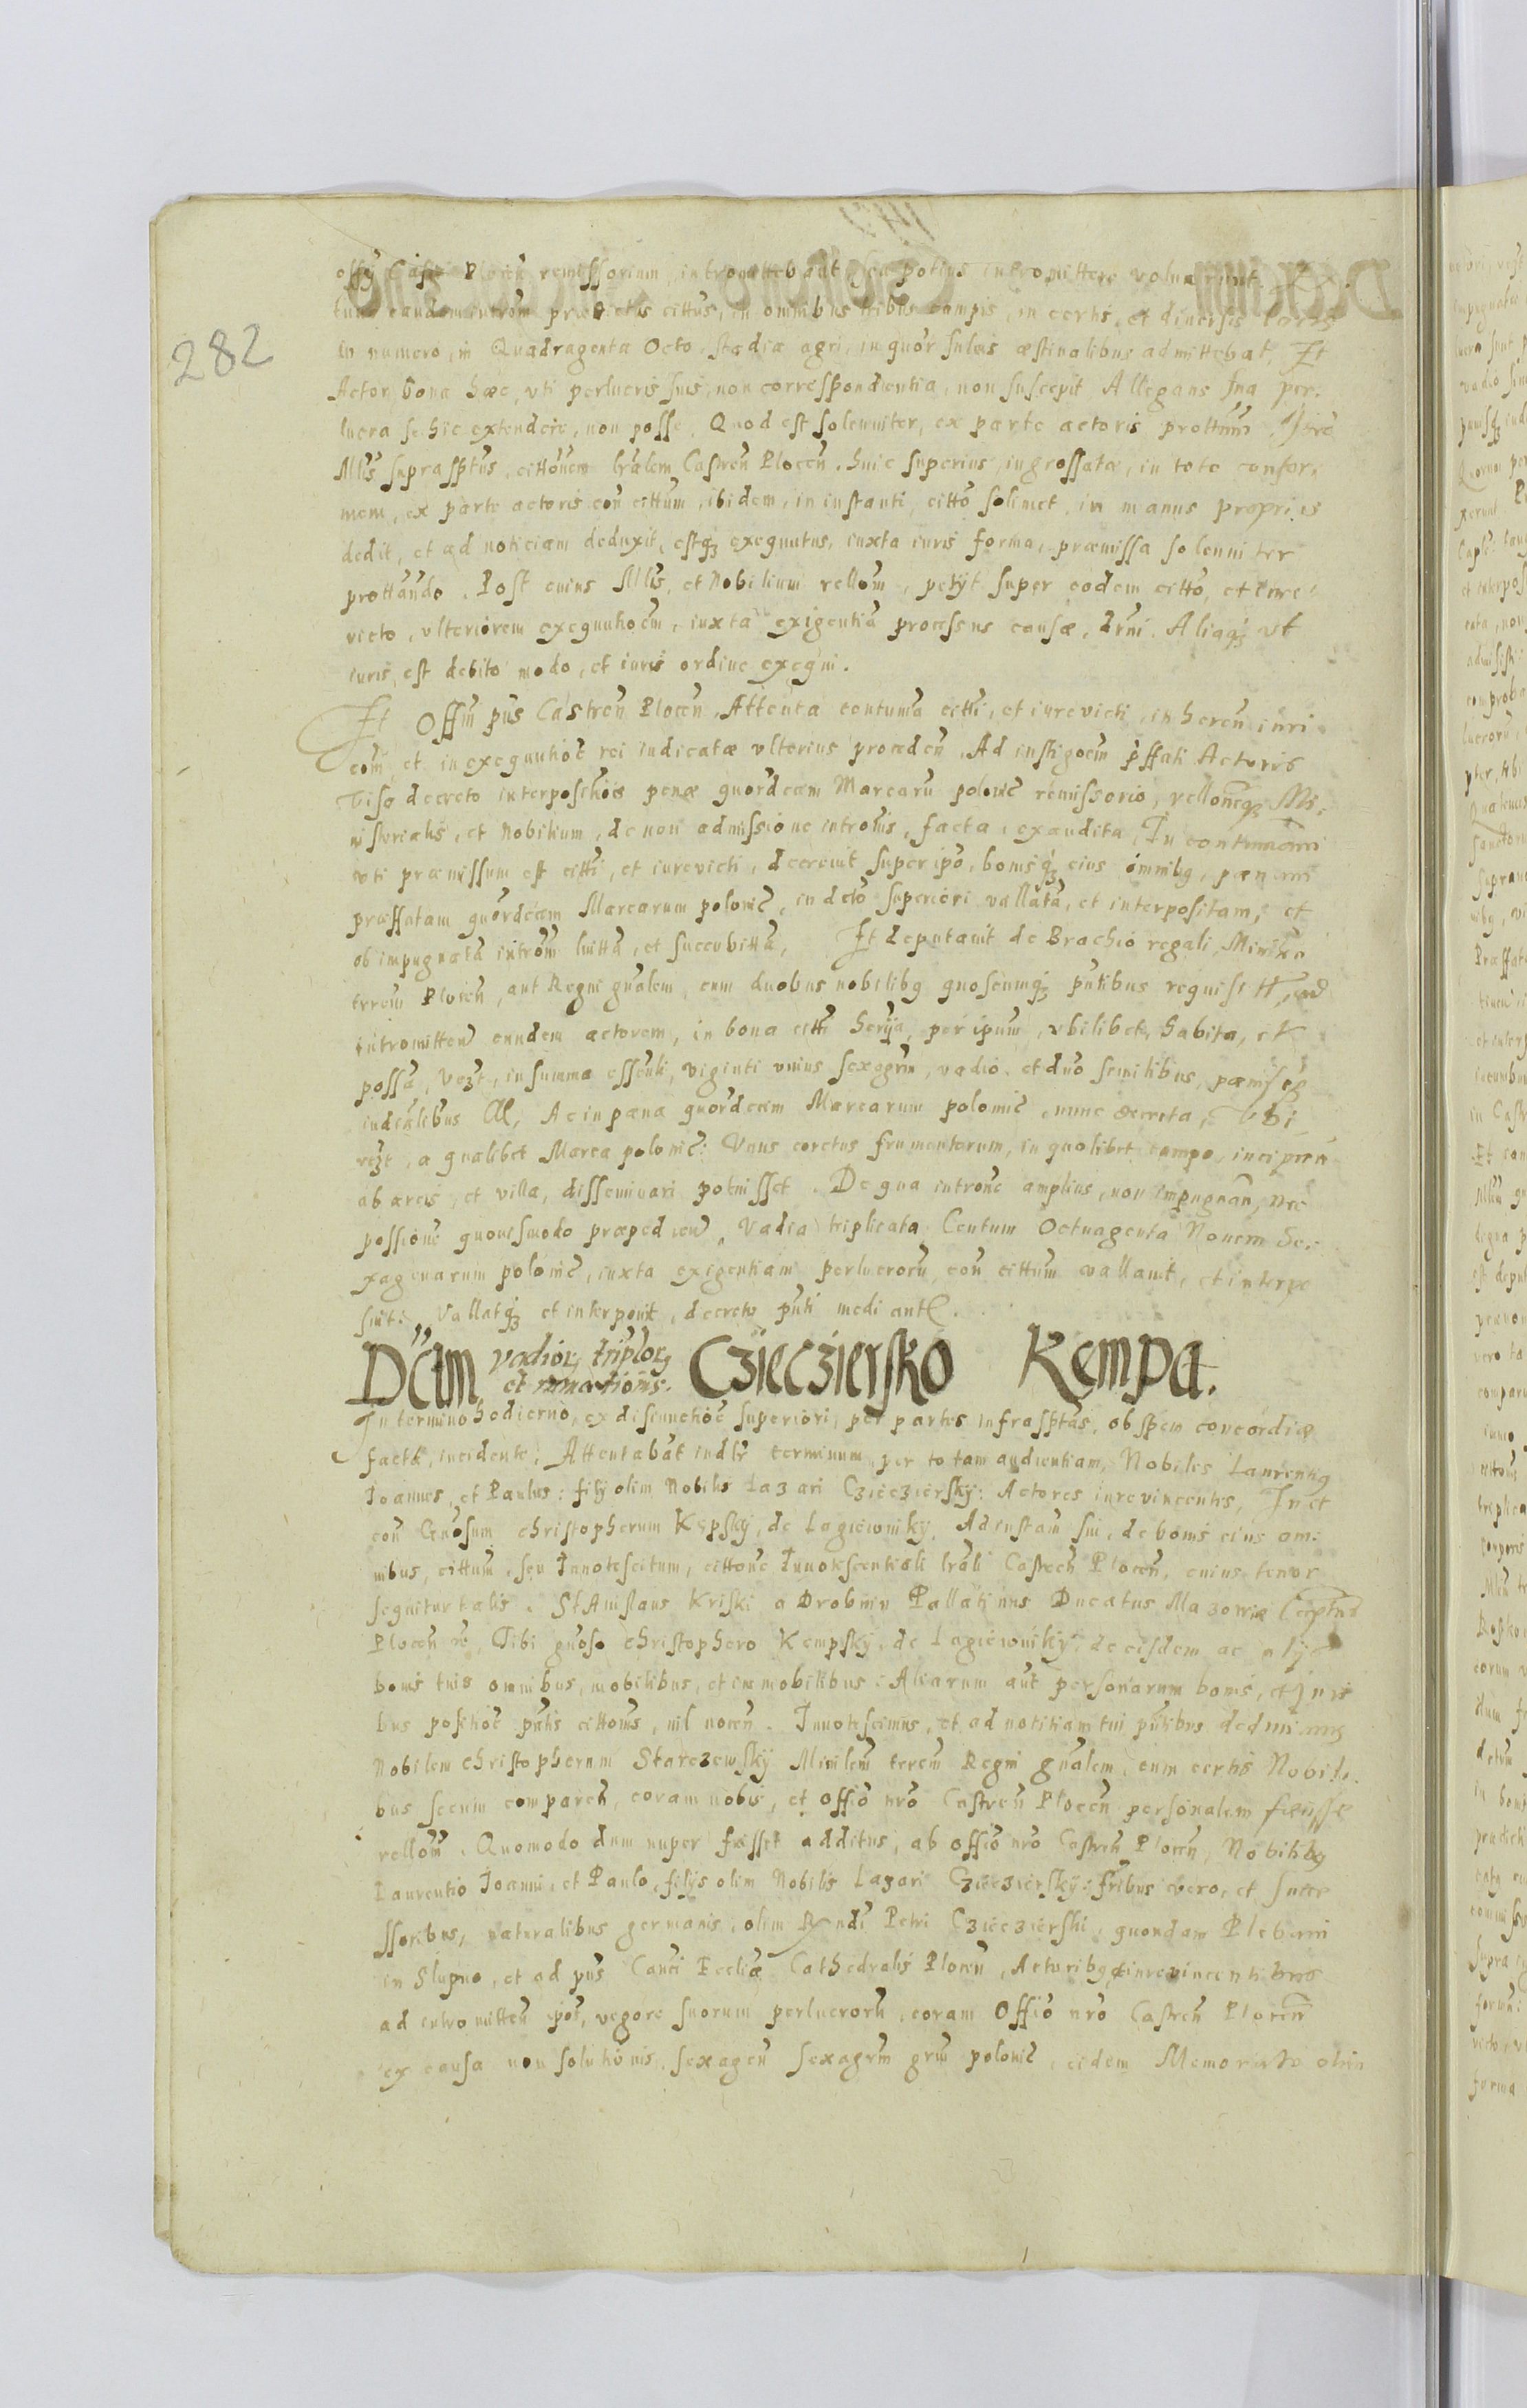 282
offy Castr Plocen remissorium, intromittebant, seu potius intromittere voluerunt. Et
tunc eandem introm prædictus cittus, in omnibus tribus campis, in certis, et diuersis locis
in numero, in Quadragenta Octo, stadia agri, in quor sulcis æstiualibus admittebat, Et
Actor bona hæc, vti perlucris suis, non correspondentia, non suscepit Allegans sua per-
lucra se hic extendere, non posse, Quod est solenniter, ex parte actoris prottum.
Mlis suprasptus, cittonem lralem Castren Plocen, huic superius, ingrossatæ, in toto confor-
mem, ex parte actoris con cittum, ibidem, in instanti, citto solimet, in manus proprias
dedit, et ad noticiam deduxit, estqȝ exequutus, iuxta iuris forma, præmissa solenniter
prottando. Post cuius Mlis, et Nobilium rellom, petyt super eodem citto, et iure-
victo, vlteriorem exequutioem, iuxta exigentia processus causæ, drni. Aliaqȝ vt
iuris, est debito modo, et iuris ordine exequi.
Et Offm pns Castren Plocen, Attenta contuma citti, et iurevicti, in heren iuri
com, et in exequutioe rei iudicatæ vlterius proceden. Ad instigoem pffati Actoris
Viso decreto interpositiois penæ quordecim Marcaru polonic remissorio, rellonegȝ Mi-
nisterialis, et Nobilium, de non admissione intromis, facta, exaudita, In contumaciam
vti præmissum est citti, et iurevicti, decreuit super ipo, bonisqȝ eius omnibg, pænam
præffatam quordecim Marcarum polonic, in dcto superiori vallata, et interpositam, et
ob impugnata introm luitta, et succubitta, Et deputauit de Brachio regali, Ministra
terrem Plocen, aut Regni gnalem, cum duobus nobilibg quoscunqȝ pntibus requisitt, ad
intromitten eundem actorem, in bona citti herya, per ipum, vbilibet, habita, et
possa, vezt, in summa essenli, viginti vnius sexagrm, vadio, et duo similibus, pænisqȝ
iudicalibus Al, Ac in pæna quordecim Marcarum polonic, nunc decreta, Vbi
vezt, a qualibet Marca polonic: Vnus coretus frumentorum, in quolibet campo, incipien
ab areis, et villa, disseminari potuisset. De qua introne amplius, non impugnan, nec
possione quouismodo præpedien, Vadia triplicata Centum Octuagenta Nouem Se-
xagenarum polonic, iuxta exigentiam perlucroru, con cittum vallauit, et interpo
suit: Vallatqȝ et interponit, decreto pnti mediante.
Dctum vadior triplor et rumationis. Cziecziersko Kempa.
In termino hodierno, ex disiunctioe superiori, per partes infrasptas, ob spem concordiæ
factæ, incidente, Attentabat iudlr terminum per totam audientiam, Nobiles Laurentig
Joannes, et Paulus: fily olim Nobilis Lazari Czieczierský: Actores iurevincentes, Juxt
con Gnosum christopherum Kępský, de Łagiewniký, Ad instam sui, de bonis eius om-
nibus, cittum, seu Innotescitum, cittone Innotescentiali lrali Castren Plocen, cuius tenor
sequitur talis. Stanislaus Kriski a Drobnin Pallatinus Ducatus Mazowiæ
Plocen Tibi gnoso christophero Kempský, de Łagiewniký, de eisdem ac alys
bonis tuis omnibus, mobilibus, et immobilibus: Aliarum aut personarum bonis, et Juri
bus positioe pntis cittonis, nil nocen. Innotescimus, et ad notitiam tui pntibus deducimus
Nobilem christopherum Starczewský Minilem terrem Regni gnalem, cum certis Nobili-
bus secum comparen, coram nobis, et offio nro Castren Plocen personalem fecisse
rellom. Quomodo dum nuper fuisset additus, ab offio nro Castren Plocen, Nobilibg
Laurentio Joanni, et Paulo, filys olim Nobilis Lazari Czieczierský: fribus vero, et succe
ssoribus, naturalibus germanis, olim Rndi Petri Czieczierski, quondam Plebani
in Slupno, et ad pns Canci Ecclia Cathedralis Plocen, Actoribg et iurevincentibus
ad intromitten ipos, vegore suorum perlucrorm, coram Offio nro Castren Plocen
ex causa non solutionis, sexagen sexagrm grm polonic, eidem Memorato olim